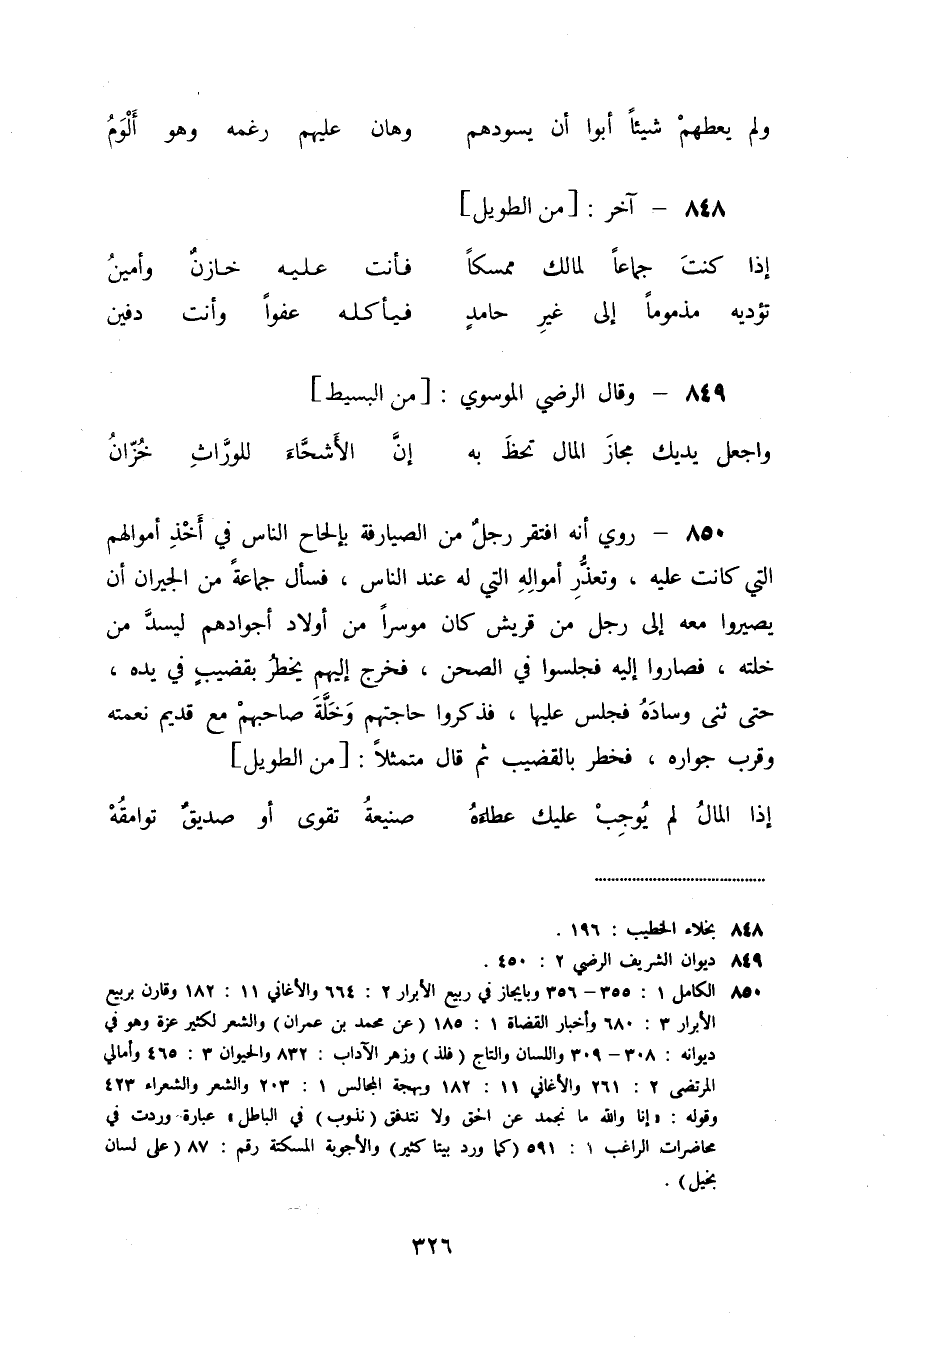 ولم يعطهمْ شيئاً أبوا أن يسودهم وهان عليهم رغمه وهو أَلْوَمُ
٨٤٨ – آخر : [من الطويل]
إذا كنتَ جماعاً لمالك ممسكاً فأنت عليه خازنٌ وأمينُ
تؤديه مذموماً إلى غيرِ حامدٍ فيأكله عفواً وأنت دفين
٨٤٩ – وقال الرضي الموسوي : [من البسيط]
واجعل يديك مجازَ المال تحظَ به إنَّ الأشحَّاءَ للورَّاثِ خُزّانُ
٨٥٠ – روي أنه افتقر رجلٌ من الصيارفة بإلحاح الناس في أَخْذِ أموالهم
التي كانت عليه ، وتعذُّرِ أموالِهِ التي له عند الناس ، فسأل جماعةً من الجيران أن
يصيروا معه إلى رجل من قريش كان موسراً من أولاد أجوادهم ليسدَّ من
خلته ، فصاروا إليه فجلسوا في الصحن ، فخرج إليهم يخطرُ بقضيبٍ في يده ،
حتى ثنى وسادَهُ فجلس عليها ، فذكروا حاجتهم وَخَلَّةَ صاحبهمْ مع قديم نعمته
وقرب جواره ، فخطر بالقضيب ثم قال متمثلاً : [من الطويل]
إذا المالُ لم يُوجِبْ عليك عطاءَهُ صنيعةُ تقوى أو صديقٌ توامقُهْ
٨٤٨ بخلاء الخطيب : ١٩٦ .
٨٤٩ ديوان الشريف الرضي ٢ : ٤٥٠ .
٨٥٠ الكامل ١ : ٣٥٥ – ٣٥٦ وبايجاز في ربيع الأبرار ٢ : ٦٦٤ والأغاني ١١ : ١٨٢ وقارن بربيع
الأبرار ٣ : ٦٨٠ وأخبار القضاة ١ : ١٨٥ (عن محمد بن عمران) والشعر لكثير عزة وهو في
ديوانه : ٣٠٨ – ٣٠٩ واللسان والتاج (فلذ) وزهر الآداب : ٨٣٢ والحيوان ٣ : ٤٦٥ وأمالي
المرتضى ٢ : ٢٦١ والأغاني ١١ : ١٨٢ وبهجة المجالس ١ : ٢٠٣ والشعر والشعراء ٤٢٣
وقوله : «إنا والله ما نجمد عن الحق ولا نتدفق (نذوب) في الباطل» عبارة وردت في
محاضرات الراغب ١ : ٥٩١ (كما ورد بيتا كثير) والأجوبة المسكتة رقم : ٨٧ (على لسان
بخيل) .
٣٢٦